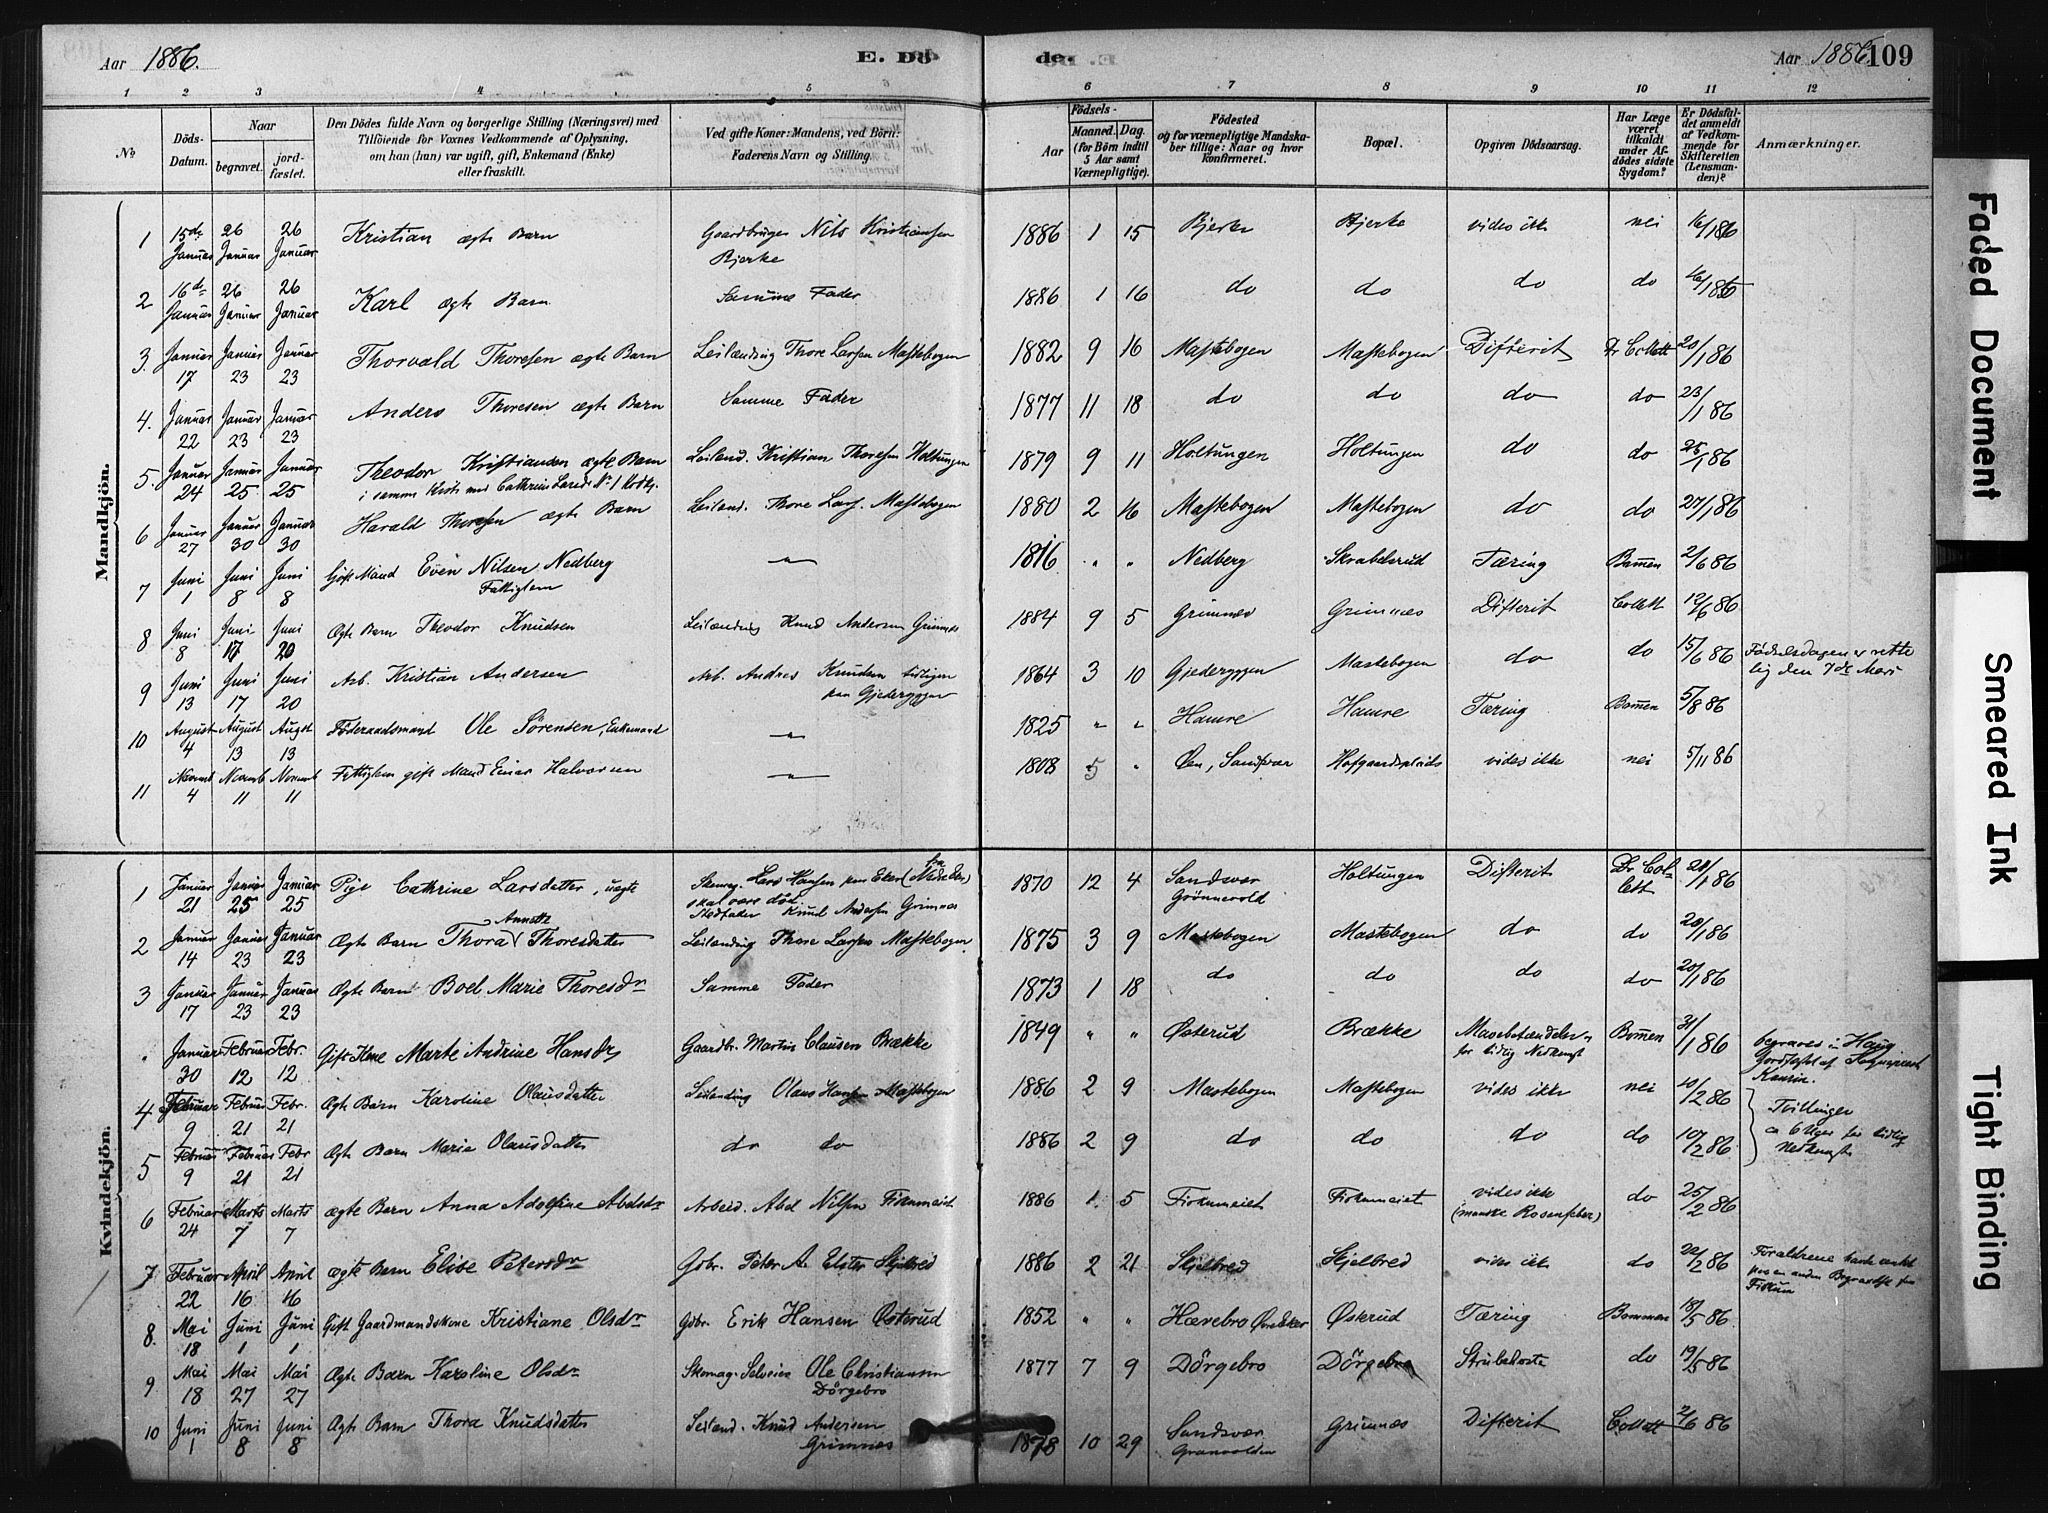 Aar 1886. E. Dö de. Aar 1886. 109
1 2 3 4 5 6 7 8 9 10 11 12
No. Döds-Datum. Naar begravet. jordfæstet. Den Dödes fulde Navn og borgerlige Stilling (Næringsvei) med Tilföiende for Voxnes Vedkommende af Oplysning, om han (hun) var ugift, gift, Enkemand (Enke) eller fraskilt. Ved gifte Koner: Mandens, ved Börn: Faderens Navn og Stilling. Födsels- Aar Maaned. Dag. (for Börn indtil 5 Aar samt Værnepligtige). Födested og for værnepligtige Mandskaber tillige: Naar og hvor konfirmeret. Bopæl. Opgiven Dödsaarsag. Har Læge været tilkaldt under Afdödes sidste Sygdom? Er Dödsfaldet anmeldt af Vedkommende for Skifteretten (Lensmanden)? Anmærkninger.
Mandkjön.
1 15de Januar 26 Januar 26 Januar Kristian ægte Barn Gaardbruger Nils Kristiansen Bjerke 1886 1 15 Bjerke Bjerke vides ikke nei 16/1 86
2 16de Januar 26 Januar 26 Januar Karl ægte Barn Samme Fader 1886 1 16 do do do do 16/1 86
3. Januar 17 Januar 23 Januar 23 Thorvald Thoresen ægte Barn Leilænding Thore Larsen Mastebogen 1882 9 16 Mastebogen Mastebogen Difterit Dr Collett 20/1 86
4. Januar 22 Januar 23 Januar 23 Anders Thoresen ægte Barn Samme Fader 1877 11 18 do do do do 23/1 86
5. Januar 24 Januar 25 Januar 25 Theodor Kristiansen ægte Barn i samme Kiste med Cathrine Larsd. No 1 Kvdkj. Leilænd. Kristian Thoresen Holtungen 1879 9 11 Holtungen Holtungen do do 25/1 86
6 Januar 27 Januar 30 Januar 30 Harald Thoresen ægte Barn Leilænd. Thore Lars. Mastebogen 1880 2 16 Mastebogen Mastebogen do do 27/1 86
7 Juni 1 Juni 8 Juni 8 Gift Mand Even Nilsen Nedberg Fattiglem " 1816 " " Nedberg Skrabdsrud Tæring Bomen 2/6 86
8 Juni 8 Juni 17 Juni 20 Ægte Barn Theodor Knudsen Leilænding Knud Andersen Grimnes 1884 9 5 Grimnæs Grimnæs Difterit Collett 12/6 86
9 Juni 13 Juni 17 Juni 20 Arb. Kristian Andersen Arb. Andres Knudsen tidligere paa Gjederyggen 1864 3 10 Gjederyggen Mastebogen do do 15/6 86 Födselsdagen er rettelig den 7de Mars
10 August 4 August 13 Augst 13 Föderaadsmand Ole Sörensen, Enkemand " 1825 " " Hamre Hamre Tæring Bomen 5/8 86
11 Novemb 4 Novemb 11 Novemb 11 Fattiglem gift Mand Einar Halvorsen " 1808 5 " Öen, Sandsvær Hofgaardsplads vides ikke nei 5/11 86
Kvindekjön.
1 Januar 21 Januar 25 Januar 25 Pige Cathrine Larsdatter, uægte Skomag. Lars Hansen paa Eker (fra Nedeker) skal være död. Stedfader Knud Andersen Grimnæs 1870 12 4 Sandsvær Grönnevold Holtungen Difterit Dr Collett 21/1 86
2 Januar 14 Januar 23 Januar 23 Ægte Barn Thora Annette Thoresdatter Leilænding Thore Larsen Mastebogen 1875 3 9 Mastebogen Mastebogen do do 20/1 86
3 Januar 17 Januar 23 Januar 23 Ægte Barn Boel Marie Thoresdr Samme Fader 1873 1 18 do do do do 20/1 86
" Januar 30 Februar 12 Febr. 12 Gift Kone Marte Andrine Hansdr Gaardbr. Martin Clausen Brække 1849 " " Østerud Brække Mavebetændelse, for tidlig Nedkomst Bomen 31/1 86 begraves i Haug Jordfæstet af Sogneprest
4 Februar 9 Februar 21 Febr. 21 Ægte Barn Karoline Olausdatter Leilænding Olaus Hansen Mastebogen 1886 2 9 Mastebogen Mastebogen vides ikke nei 10/2 86 Tvillinger ca 6 Uger for tidlig Nedkomst
5 Februar 9 Februar 21 Febr 21 Ægte Barn Marie Olausdatter do do 1886 2 9 do do do do 10/2 86
6 Februar 24 Marts 7 Marts 7 ægte Barn Anna Adolfine Abelsdr Arbeid. Abel Nilsen Fiskumeiet 1886 1 5 Fiskumeiet Fiskumeiet vides ikke (maaske Rosenfeber) do 25/2 86
7 Februar 22 April 16 April 16 ægte Barn Elise Petersdr Gdbr. Peter A. Elster Skjelbred 1886 2 21 Skjelbred Skjelbred vides ikke do 22/2 86 Forældrene havde tænkt paa en anden Begravelse for Fiskum
8. Mai 18 Juni 1 Juni 1 Gift Gaardmandskone Kristiane Olsdr Gdbr. Erik Hansen Østerud 1852 " " Hærebro Øvre Eker Østerud Tæring Bommen 18/5 86
9 Mai 18 Mai 27 Mai 27 Ægte Barn Karoline Olsdr Skomag. Selveier Ole Christiansen Dörgebro 1877 7 9 Dörgebro Dörgebro Strubehoste do 19/5 86
10 Juni 1 Juni 8 Juni 8 Ægte Barn Thora Knudsdatter Leilænd. Knud Andersen Grimnæs 1878 10 29 Sandsvær Granvolden Grimnæs Difterit Collett 2/6 86
Faded Document
Smeared Ink
Tight Binding